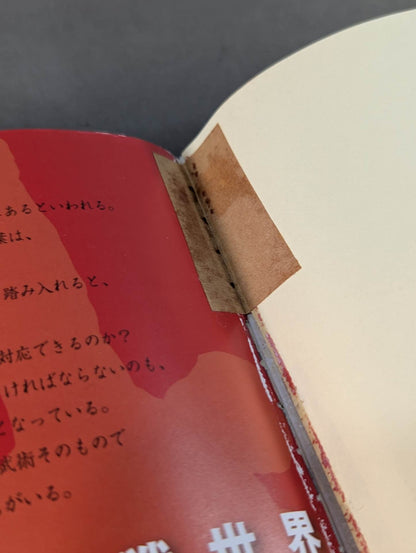 あるといわれる。
は、
踏み入れると、
対応できるのか?
ければならないのも、
となっている。
武術そのもので
がいる。
世界